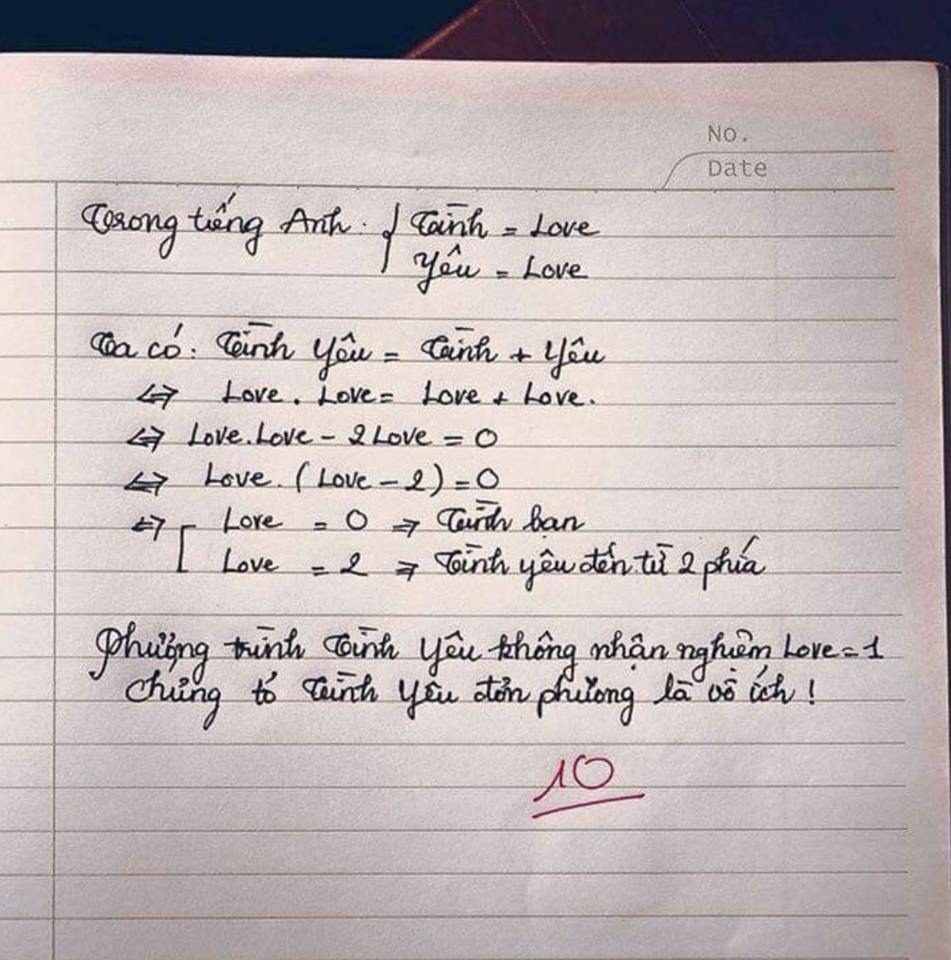 No.
Date
Trong tiếng Anh: { Tình = Love
Yêu = Love
Ta có: Tình Yêu = Tình + Yêu
⇔ Love . Love = Love + Love.
⇔ Love.Love - 2Love = 0
⇔ Love. (Love - 2) = 0
⇔ [ Love = 0 ⇒ Tình bạn
Love = 2 ⇒ Tình yêu đến từ 2 phía
Phương trình Tình Yêu không nhận nghiệm Love = 1
Chứng tỏ Tình Yêu đơn phương là vô ích !
10